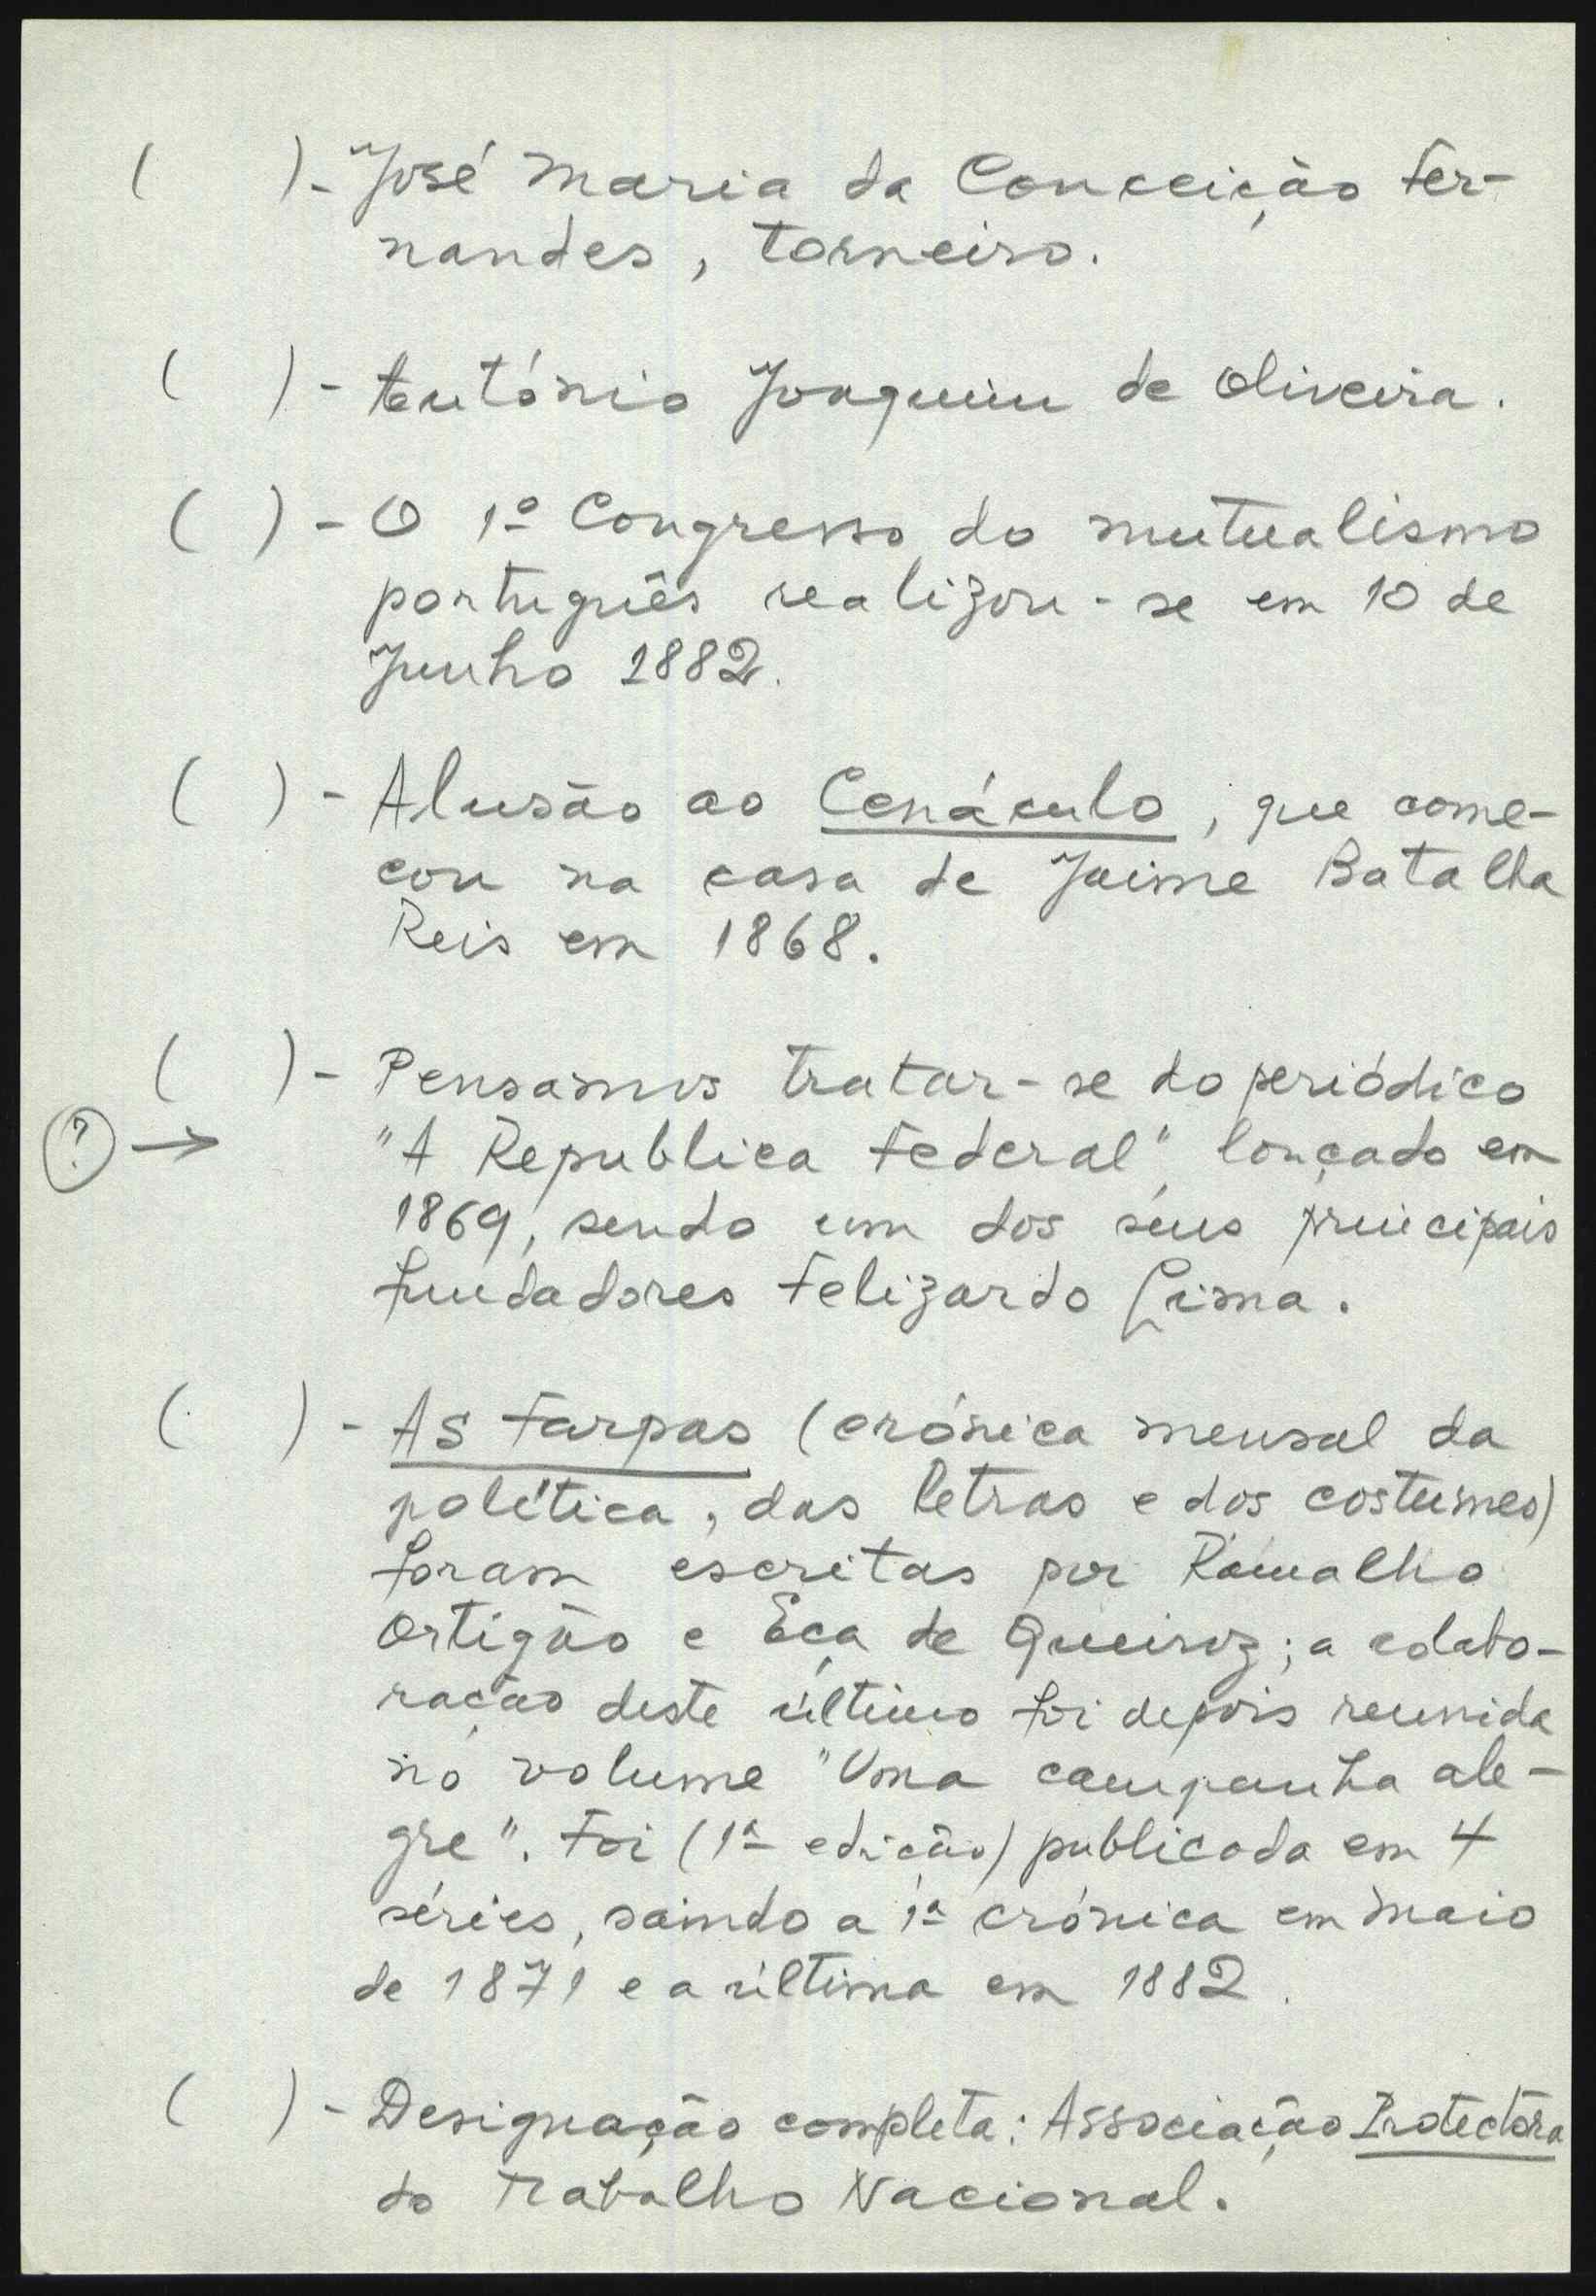 ( ) - José Maria da Conceição Fer-
nandes, torneiro.
( ) - Teutónio Joaquim de Oliveira.
( ) - O 1º Congresso do mutualismo
português realizou-se em 10 de
Junho 1882.
( ) - Alusão ao Cenáculo, que come-
çou na casa de Jaime Batalha
Reis em 1868.
( ) - Pensamos tratar-se do periódico
(?) → "A Republica Federal" lançado em
1869, sendo um dos seus principais
fundadores Felizardo Lima.
( ) - As Farpas (crónica mensal da
política, das letras e dos costumes)
foram escritas por Ramalho
Ortigão e Eça de Queiroz; a colabo-
ração deste último foi depois reunida
no volume "Uma campanha ale-
gre". Foi (1ª edição) publicada em 4
séries, saindo a 1ª crónica em Maio
de 1871 e a última em 1882.
( ) - Designação completa: Associação Protectora
do Trabalho Nacional.